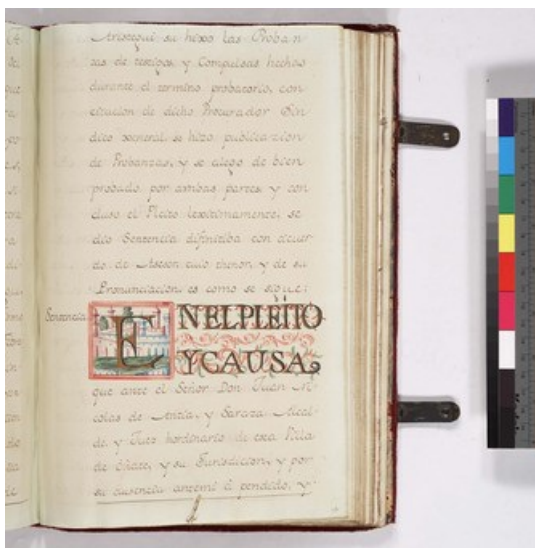 Aristegui su hixo las Proban
zas de testigos, y Compulsas hechas
durante el termino probatorio, con
citacion de dicho Procurador Sin
dico xeneral, se hizo publicazion
de Probanzas, y se alego de bien
probado por ambas partes, y con
cluso el Pleito lexitimamente, se
dio Sentencia difinitiba con acuer
do de Asesor cuio thenor, y de su
Pronunciacion es como se sigue:
Sentencia
EN EL PLEITO
Y CAUSA
que ante el Señor Don Juan Ni
colas de y Saraza Alcal
de, y Juez hordinario de esta Villa
de Oñate, y su Jurisdicion, y por
su ausencia antemi a pendido, y